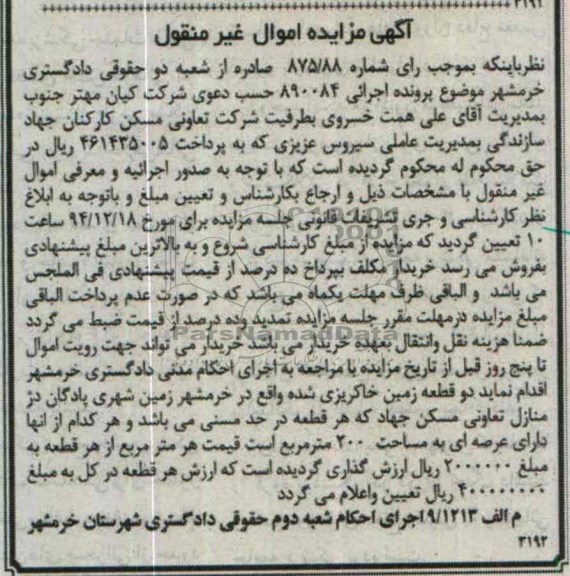 ۳۱۹۱
آگهی مزایده اموال غیر منقول
نظرباینکه بموجب رای شماره ۸۷۵/۸۸ صادره از شعبه دو حقوقی دادگستری
خرمشهر موضوع پرونده اجرائی ۸۹۰۰۸۴ حسب دعوی شرکت کیان مهتر جنوب
بمدیریت آقای علی همت خسروی بطرفیت شرکت تعاونی مسکن کارکنان جهاد
سازندگی بمدیریت عاملی سیروس عزیزی که به پرداخت ۴۶۱۴۳۵۰۰۵ ریال در
حق محکوم له محکوم گردیده است که با توجه به صدور اجرائیه و معرفی اموال
غیر منقول با مشخصات ذیل و ارجاع بکارشناس و تعیین مبلغ و باتوجه به ابلاغ
نظر کارشناسی و جری تشریفات قانونی جلسه مزایده برای مورخ ۹۴/۱۲/۱۸ ساعت
۱۰ تعیین گردید که مزایده از مبلغ کارشناسی شروع و به بالاترین مبلغ پیشنهادی
بفروش می رسد خریدار مکلف بپرداخ ده درصد از قیمت پیشنهادی فی الملجس
می باشد و الباقی ظرف مهلت یکماه می باشد که در صورت عدم پرداخت الباقی
مبلغ مزایده درمهلت مقرر جلسه مزایده تمدید وده درصد از قیمت ضبط می گردد
ضمنا هزینه نقل وانتقال بعهده خریدار می باشد خریدار می تواند جهت رویت اموال
تا پنج روز قبل از تاریخ مزایده با مراجعه به اجرای احکام مدنی دادگستری خرمشهر
اقدام نماید دو قطعه زمین خاکریزی شده واقع در خرمشهر زمین شهری پادگان دژ
منازل تعاونی مسکن جهاد که هر قطعه در حد مسنی می باشد و هر کدام از انها
دارای عرصه ای به مساحت ۲۰۰ مترمربع است قیمت هر متر مربع از هر قطعه به
مبلغ ۲۰۰۰۰۰۰ ریال ارزش گذاری گردیده است که ارزش هر قطعه در کل به مبلغ
۴۰۰۰۰۰۰۰۰ ریال تعیین واعلام می گردد
م الف ۹/۱۲۱۳ اجرای احکام شعبه دوم حقوقی دادگستری شهرستان خرمشهر
۳۱۹۲
ParsNamadData